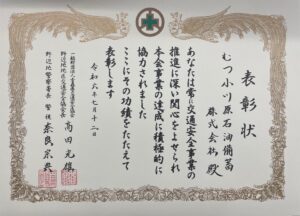 表彰状
むつ小川原石油備蓄
株式会社殿
あなたは常に交通安全事業の
推進に深い関心をよせられ
本会事業の達成に積極的に
協力されました
ここにその功績をたたえて
表彰します
令和六年七月十二日
野辺地地区交通安全協会長
高田
野辺地警察署長
警視
奈良